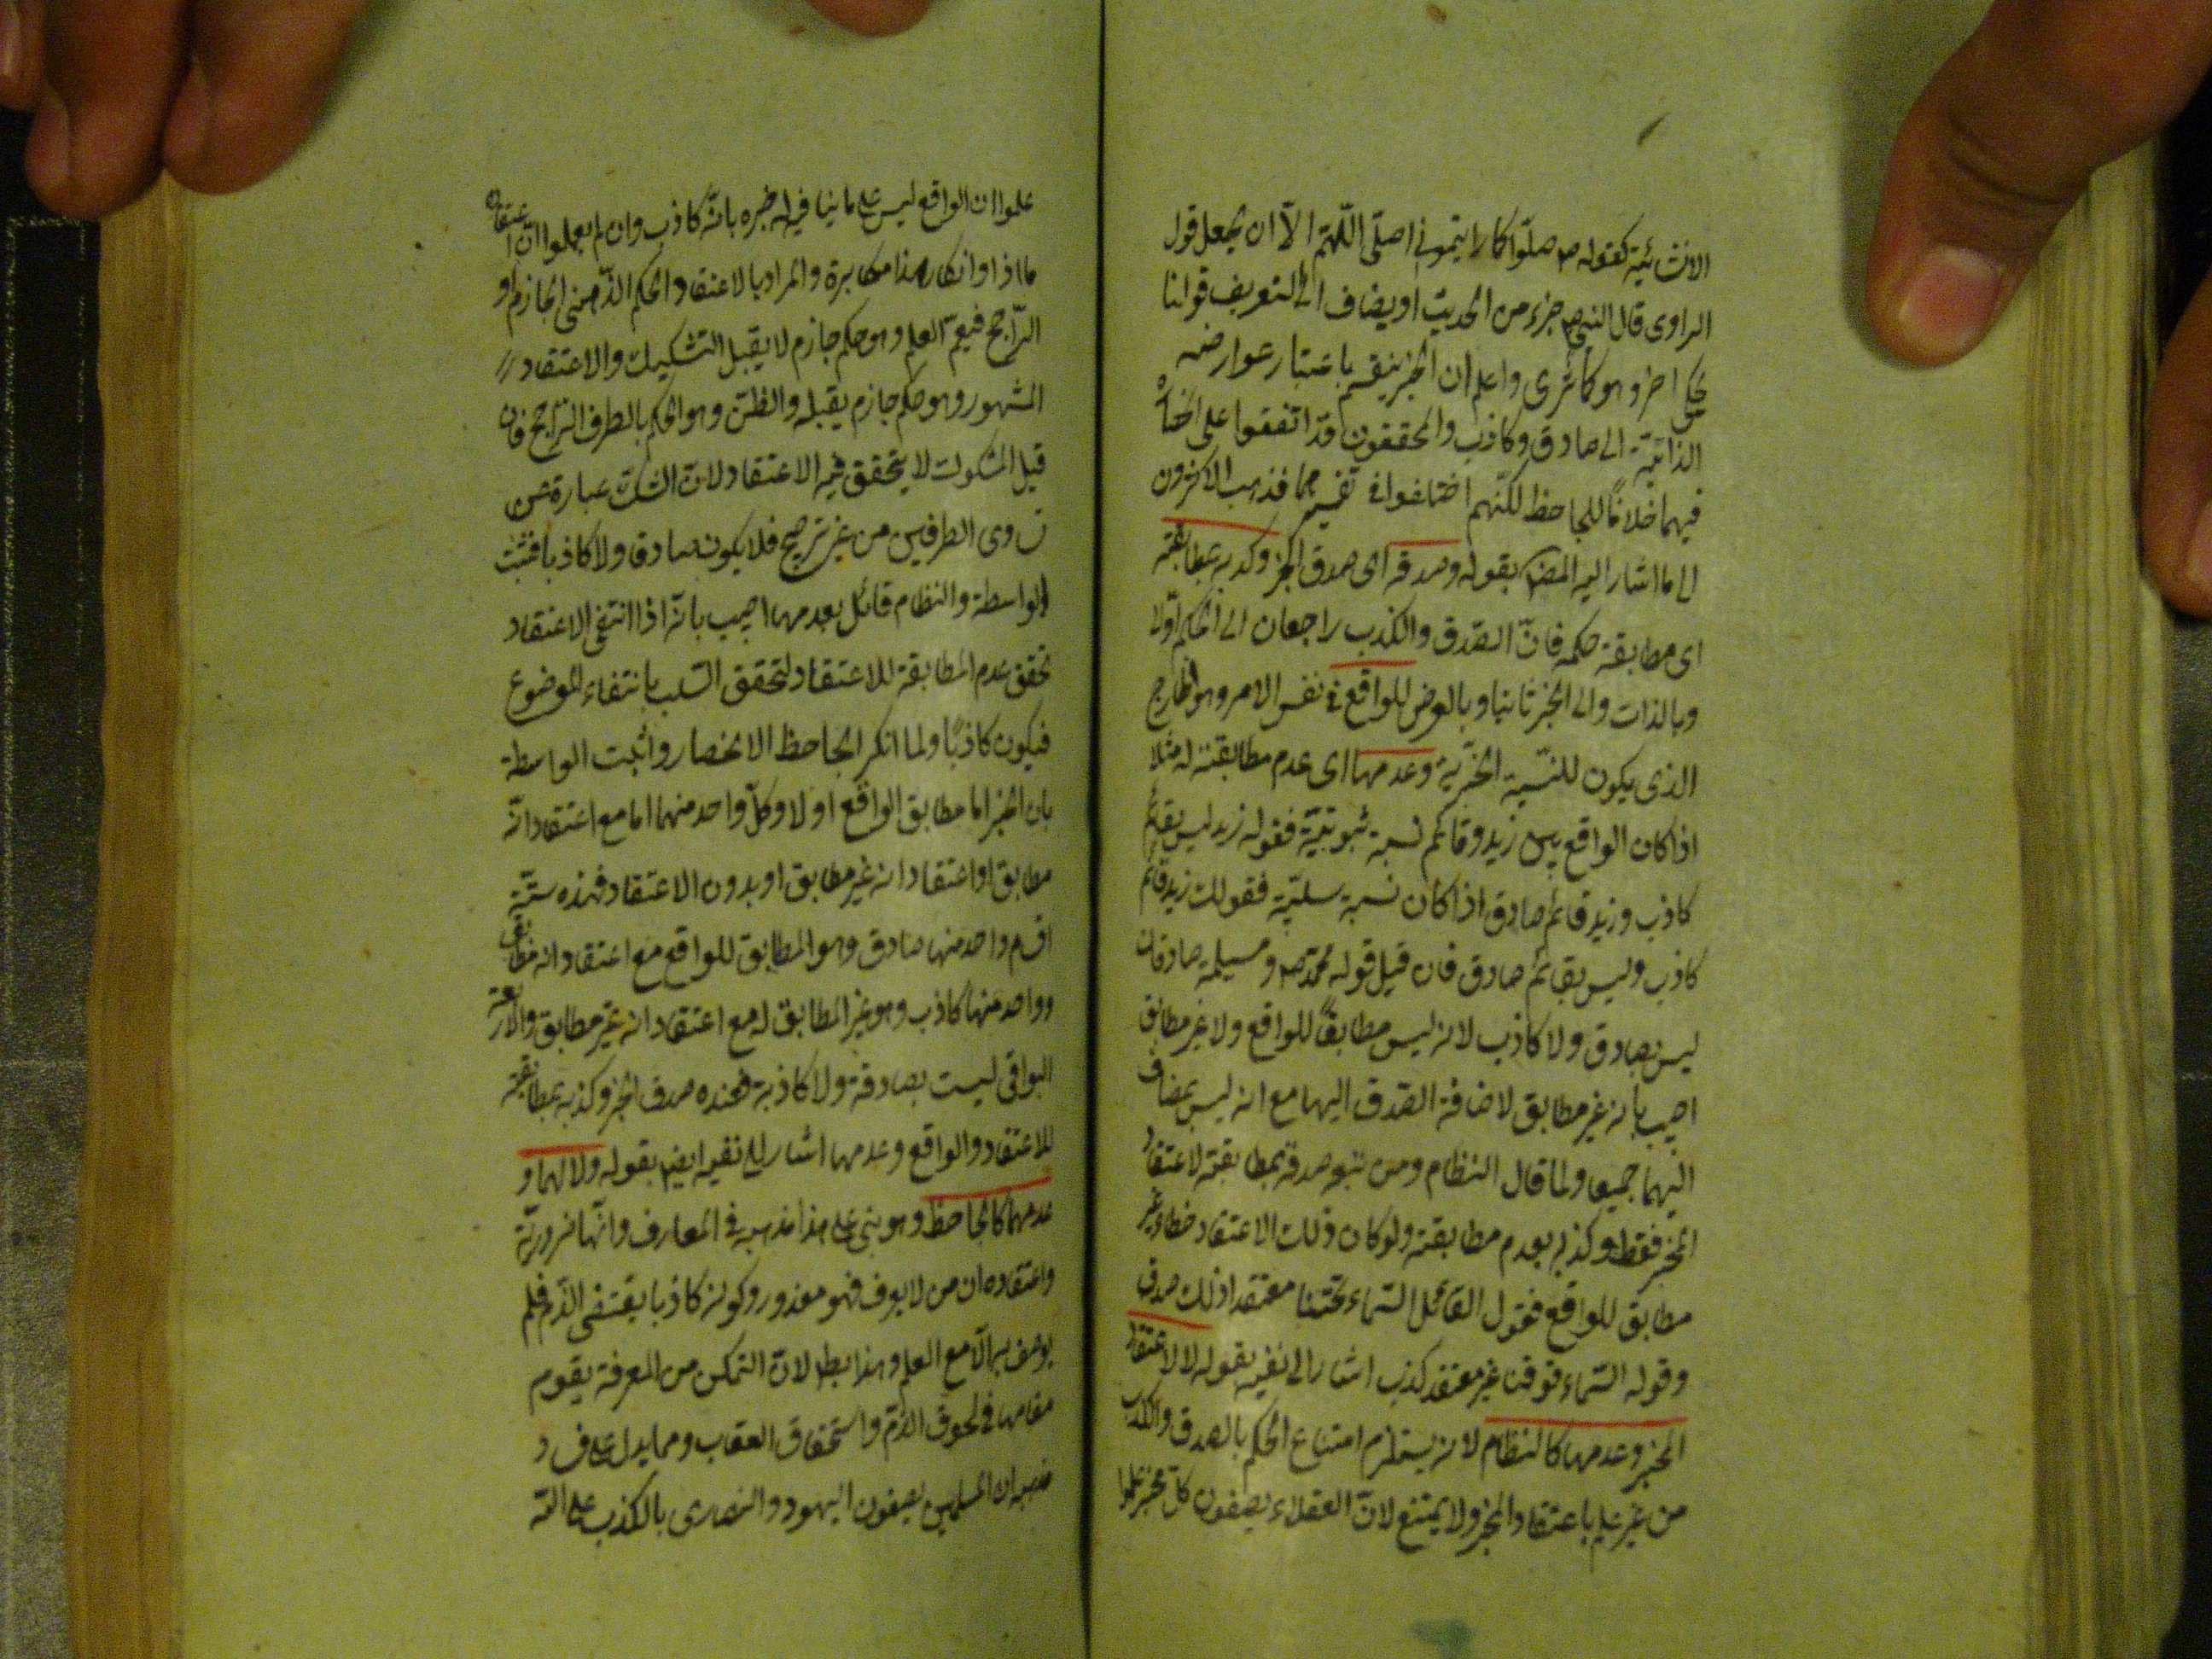 الانشائية كقوله ص صلوا كما رايتموني اصلي اللهم الا ان يجعل قول
الراوي قال النبي ص جزء من الحديث او يضاف الى التعريف قولنا
يحكي اخر وهو كما ترى واعلم ان الخبر ينقسم باعتبار عوارضه
الذاتية الى صادق وكاذب والمحققون قد اتفقوا على انحصاره
فيهما خلافا للجاحظ لكنهم اختلفوا في تفسيرهما فذهب الاكثرون
الى ما اشار اليه المصنف بقوله وصدقه اى صدق الخبر وكذبه بمطابقته
اى مطابقة حكمه فان الصدق والكذب راجعان الى الحكم اولا
وبالذات والى الخبر ثانيا وبالعرض للواقع في نفس الامر وهو الخارج
الذي يكون للنسبة الخبرية وعدمها اى عدم مطابقته له مثلا
اذا كان الواقع بين زيد وقائم نسبة ثبوتية فقوله زيد ليس بقائم
كاذب وزيد قائم صادق اذا كان نسبة سلبية فقولك زيد قائم
كاذب وليس بقائم صادق فان قيل قوله محمد ص ومسيلمة صادقان
ليس بصادق ولا كاذب لانه ليس مطابقا للواقع ولا غير مطابق
اجيب بانه غير مطابق لاضافة الصدق اليهما مع انه ليس بمضاف
اليهما جميعا ولما قال النظام ومن تبعه صدقه بمطابقته لاعتقاد
المخبر فقط وكذبه بعدم مطابقته ولو كان ذلك الاعتقاد خطاء وغير
مطابق للواقع فقول القائل السماء تحتنا معتقدا ذلك صدق
وقوله السماء فوقنا غير معتقد كذب اشار الى نفيه بقوله لا لاعتقاد
المخبر وعدمها كالنظام لانه يستلزم امتناع الحكم بالصدق والكذب
من غير علم باعتقاد المخبر ولا يمتنع لان العقلاء يصفون كل مخبر علموا
علموا ان الواقع ليس على ما ينافيه خبره بانه كاذب وان لم يعلموا ان اعتقاده
ماذا وانكار هذا مكابرة والمراد بالاعتقاد الحكم الذهني الجازم او
الراجح فيعم العلم وهو حكم جازم لا يقبل التشكيك والاعتقاد
المشهور وهو حكم جازم يقبله والظن وهو الحكم بالطرف الراجح فان
قيل المشكوك لا يتحقق فيه الاعتقاد لان الشك عبارة عن
تساوى الطرفين من غير ترجيح فلا يكون صادقا ولا كاذبا فتثبت
الواسطة والنظام قائل بعدمها اجيب بانه اذا انتفى الاعتقاد
تحقق عدم المطابقة للاعتقاد لتحقق السلب بانتفاء الموضوع
فيكون كاذبا ولما انكر الجاحظ الانحصار واثبت الواسطة
بان الخبر اما مطابق الواقع او لا وكل واحد منهما اما مع اعتقاد انه
مطابق او اعتقاد انه غير مطابق او بدون الاعتقاد فهذه ستة
اقسام واحد منها صادق وهو المطابق للواقع مع اعتقاد انه مطابق
وواحد منها كاذب وهو غير المطابق له مع اعتقاد انه غير مطابق والاربعة
البواقي ليست بصادقة ولا كاذبة فعنده صدق الخبر وكذبه بمطابقته
للاعتقاد والواقع وعدمها اشار الى نفيه ايضا بقوله ولا لهما و
عدمهما كالجاحظ وهو بنى على هذا مذهبه في المعارف وانها ضرورية
واعتقاده ان من لا يعرف فهو معذور وكونه كاذبا يقتضى الذم فلم
يوصف به الا مع العلم وهذا بط لان التمكن من المعرفة يقوم
مقامها في لحوق الذم واستحقاق العقاب ومما يدل على فساد
مذهبه ان المسلمين يصفون اليهود والنصارى بالكذب على الله